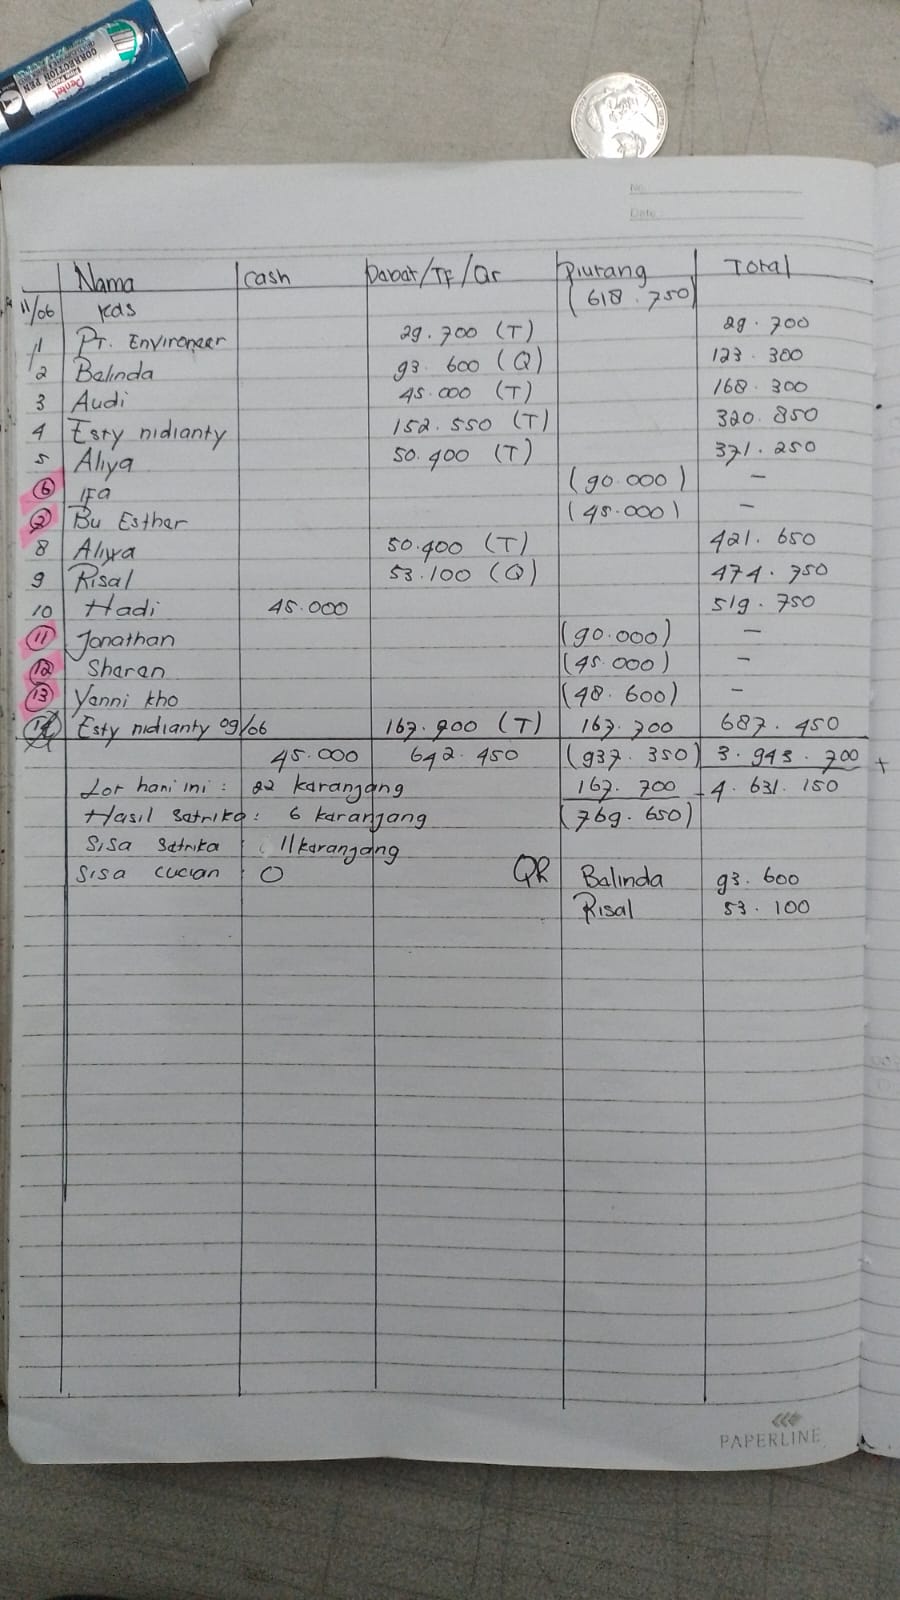 Pentel
CORRECTION PEN
No.
Date:
Nama | Cash | Dabat/TF/Qr | Piutang | Total
11/06 | Kas | (618.750)
1 | PT. Environeer | 29.700 (T) | 29.700
2 | Balinda | 93.600 (Q) | 123.300
3 | Audi | 45.000 (T) | 168.300
4 | Esty nidianty | 152.550 (T) | 320.850
5 | Aliya | 50.400 (T) | 371.250
6 | IFa | (90.000) | -
7 | Bu Esther | (45.000) | -
8 | Aliya | 50.400 (T) | 421.650
9 | Risal | 53.100 (Q) | 474.750
10 | Hadi | 45.000 | 519.750
11 | Jonathan | (90.000) | -
12 | Sharan | (45.000) | -
13 | Yanni kho | (48.600) | -
Esty nidianty 09/06 | 167.700 (T) | 167.700 | 687.450
45.000 | 642.450 | (937.350) | 3.943.700 +
Lor hari ini : 22 karanjang | 167.700 - | 4.631.150
Hasil Satrika : 6 karanjang | (769.650)
Sisa Satrika : 11 karanjang
Sisa cucian : 0 | QR | Balinda | 93.600
Risal | 53.100
PAPERLINE